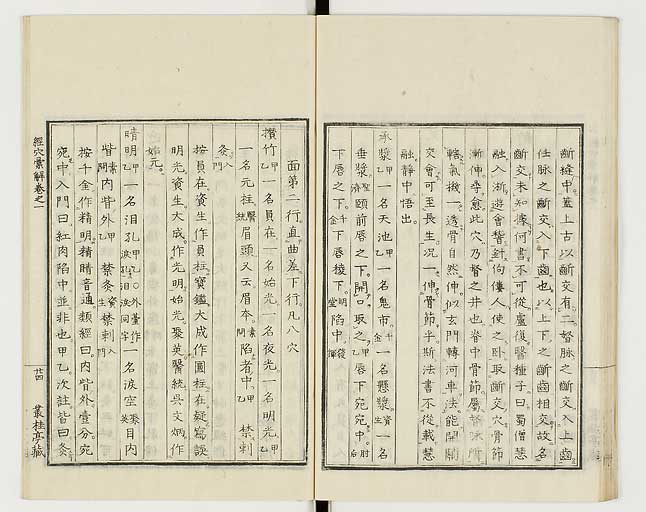 斷縫中蓋上古以斷交有二督脉之斷交入上齒
任脉之斷交入下齒也以上下之斷齒相交故名
斷交未知據何書不可從盧復醫種子曰蜀僧慧
融入漸遊會稽針佝僂人使之臥取斷交穴骨節
漸伸尋愈此穴乃督之井也脊中骨節屬督脉所
轄氣機一透骨自然伸似玄門轉河車法能開關
交會可至長生况一伸骨節乎斯法書不從載慧
融靜中悟出
承漿甲一名天池甲一名鬼市千金一名懸漿資生一名
垂漿聖濟頤前唇之下開口取之甲乙唇下宛宛中肘后
下唇之下千金下唇稜下明堂陷中
面第二行直曲差下行凡八穴
攢竹甲乙一名員在一名始光一名夜光一名明光甲乙
一名元柱眉頭又云眉本素問陷者中甲乙禁刺
灸入門
按員在資生作員柱寶鑑大成作圓柱在疑寫誤
明光資生大成作光明始光聚英醫統吳文炳作
始元
睛明甲乙一名泪孔甲乙外臺作淚孔泪淚同字一名淚空聚英目内
眥素問内眥外甲乙禁灸資生禁刺入門
按千金作精明精睛音通類經曰内眥外壹分宛
宛中入門曰紅肉陷中並非也甲乙次註皆曰灸
經穴彙解卷之一
廿四
叢桂亭藏